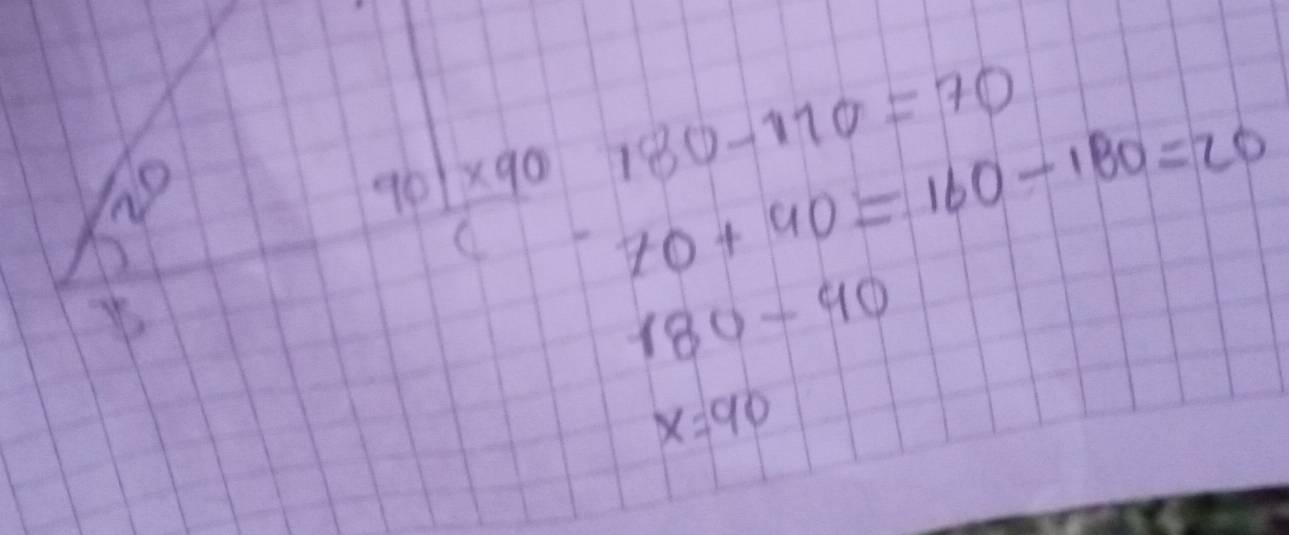 180-110=70
90 x90
20
C
70+90=160-180=20
B
180-90
x=90